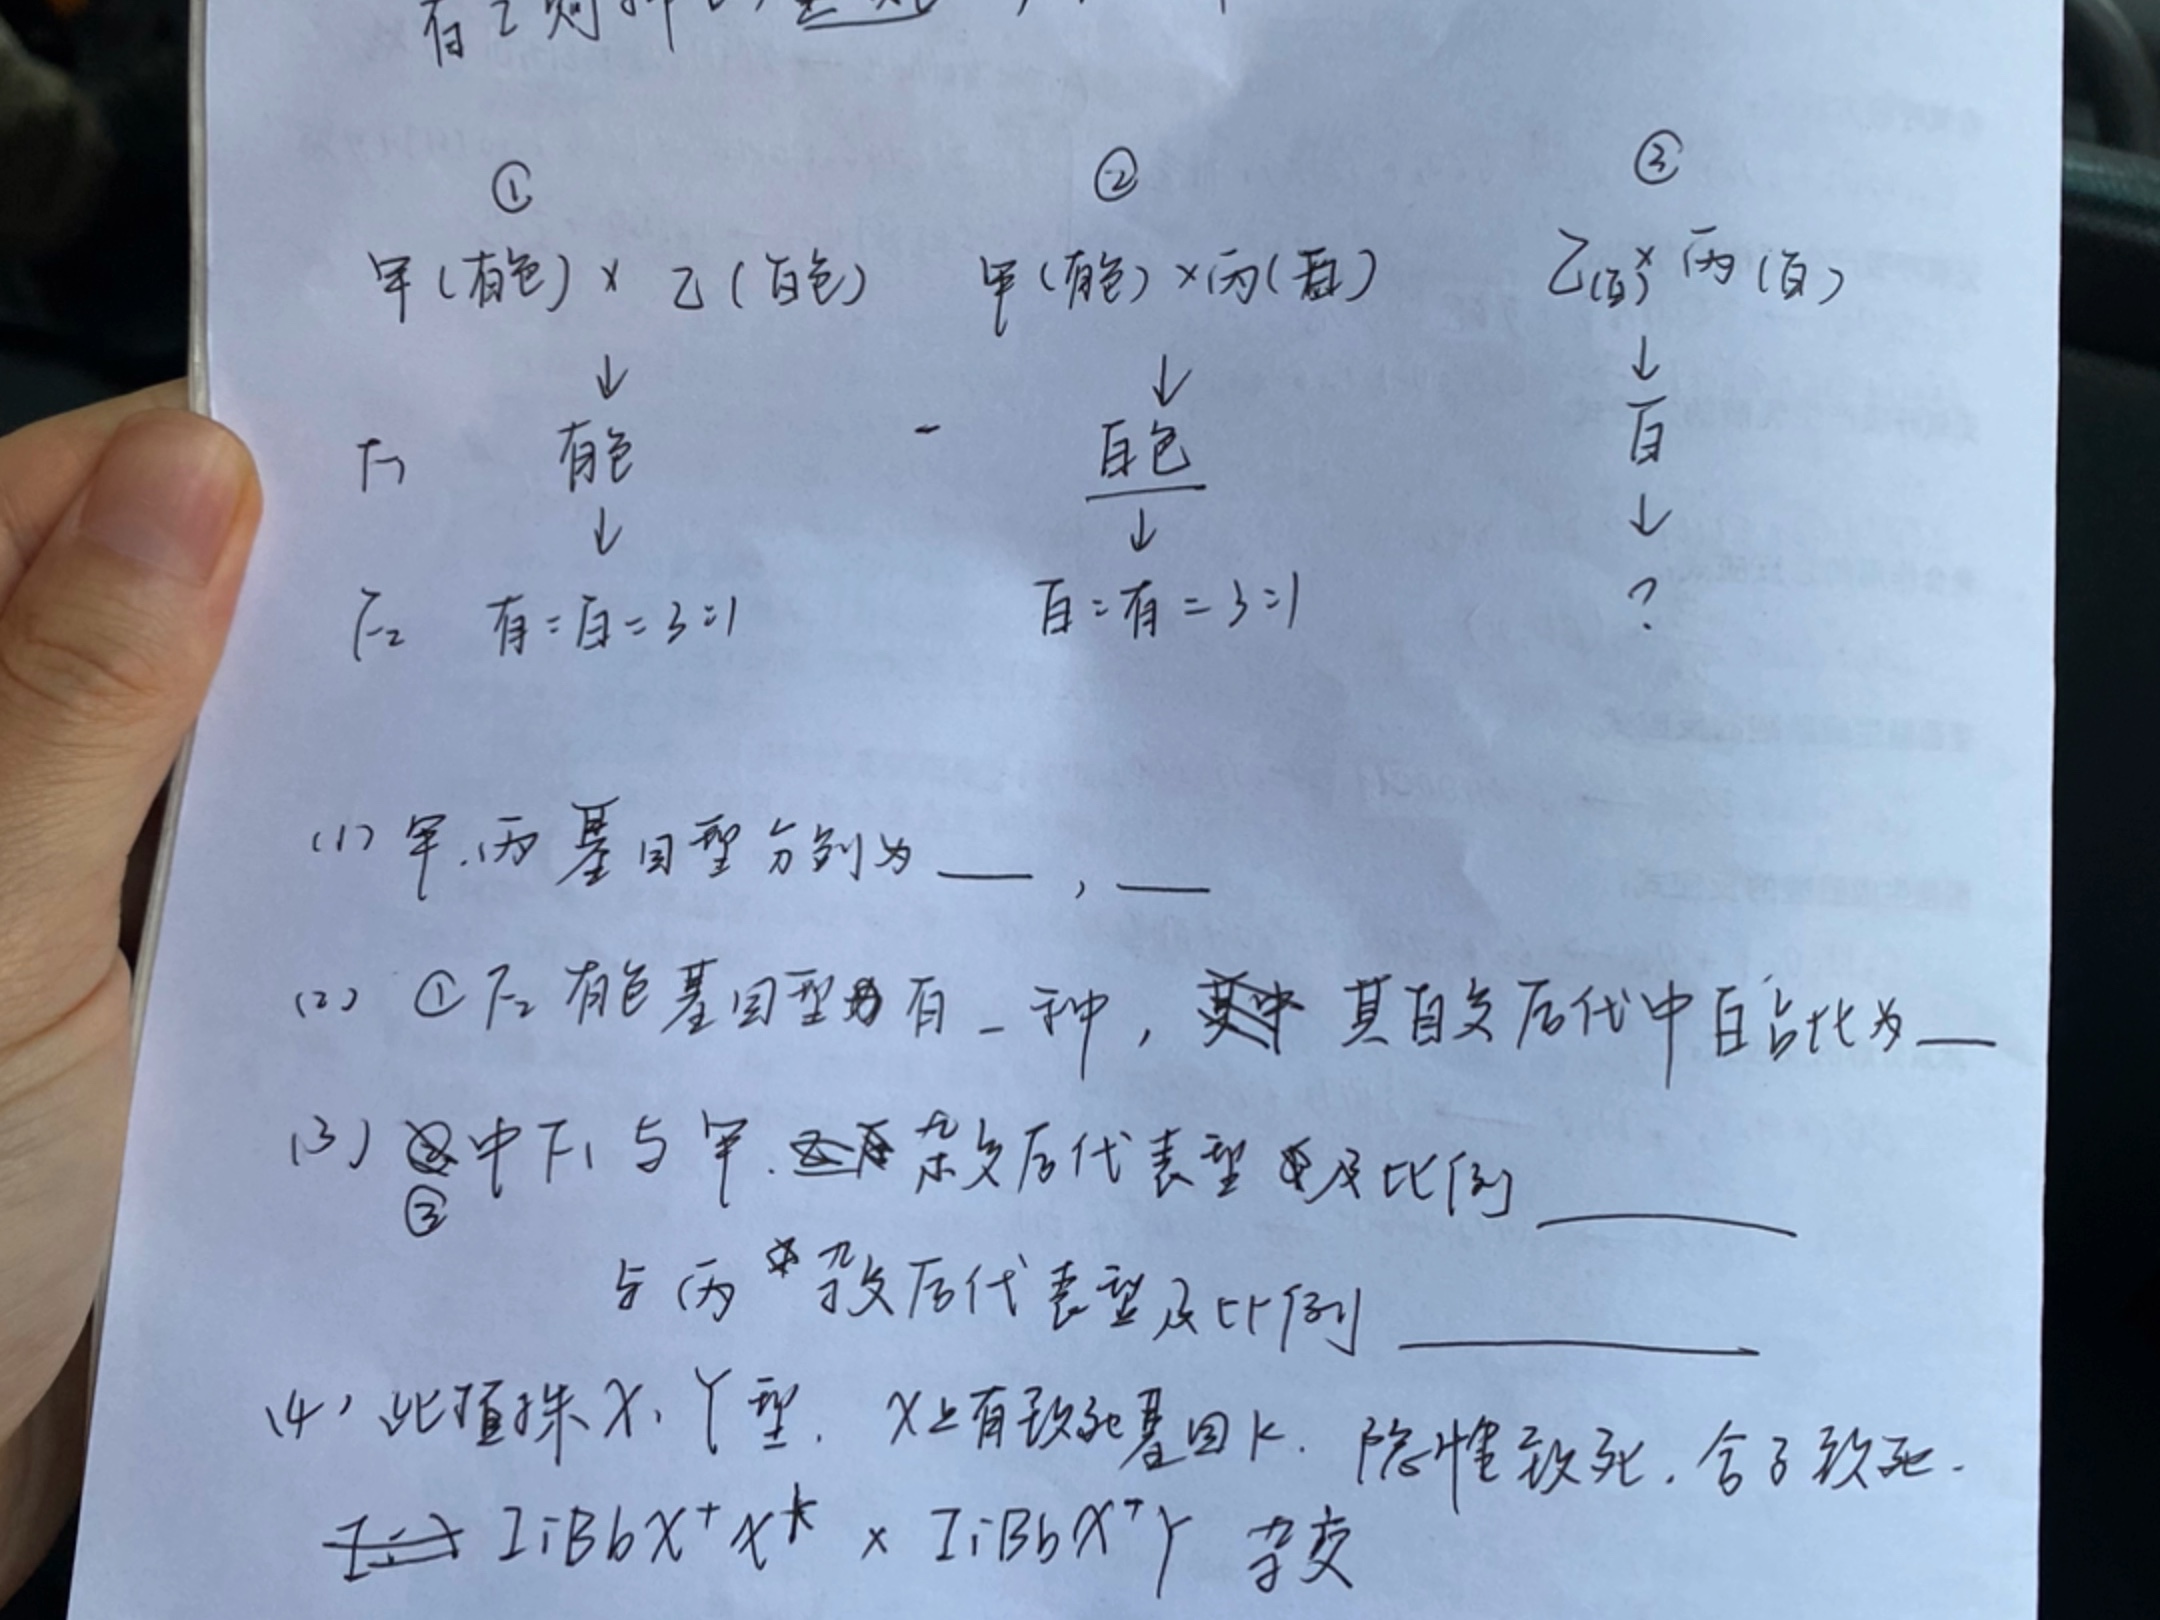 有I则抑
① ② ③
甲(有色)× 乙(白色) 甲(有色)×丙(白) 乙(白)×丙(白)
↓ ↓ ↓
F₁ 有色 - 白色 白
↓ ↓ ↓
F₂ 有:白=3:1 白:有=3:1 ?
(1) 甲.丙基因型分别为___,___
(2) ①F₂有色基因型有_种, 其自交后代中白占比为__
(3) 中F₁与甲.杂交后代表型及比例______
②
与丙杂交后代表型及比例________
(4) 此植株X、Y型. X上有致死基因k. 隐性致死.合子致死.
IiBbX⁺Xᵏ × IiBbX⁺Y 杂交